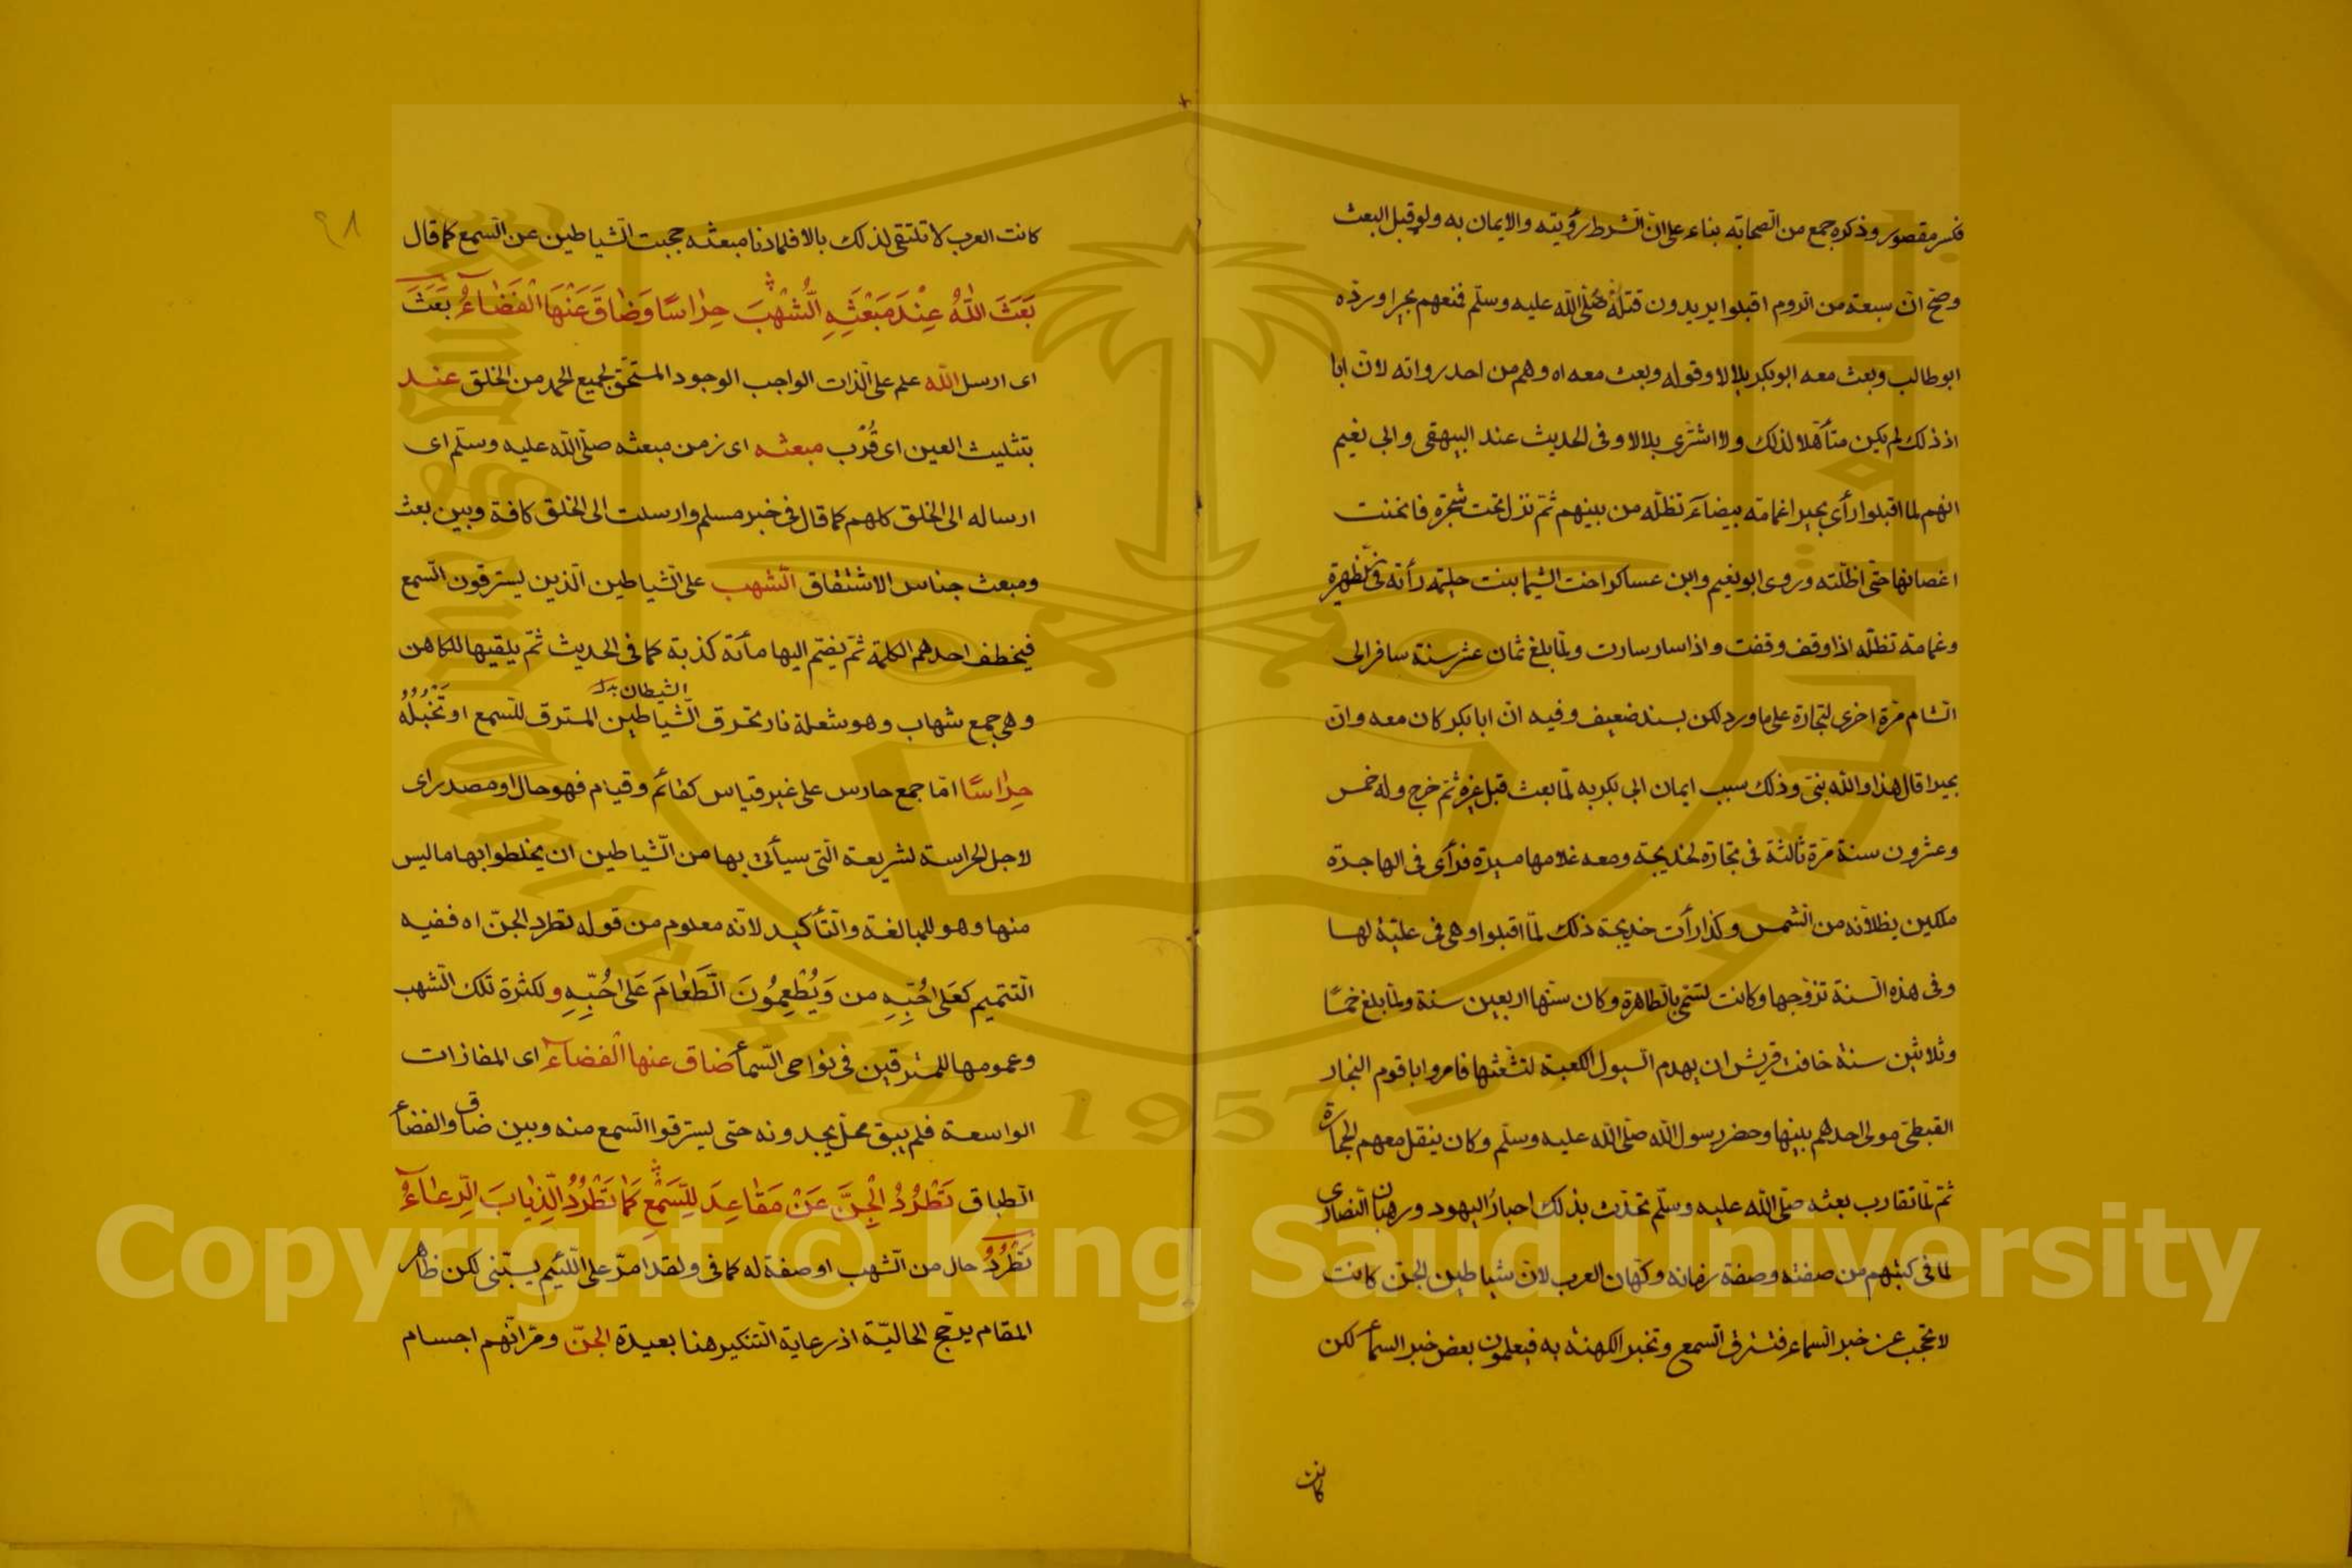 فكسر مقصور وذكره جمع من الصحابة بناء على ان الشرط رؤيته والايمان به ولو قبل البعث
وصح ان سبعة من الروم اقبلوا يريدون قتله صلى الله عليه وسلم فمنعهم بحيرا ورده
ابوطالب وبعث معه ابوبكر بلالا وقوله وبعث معه اه وهم من احد رواته لان ابا
اذ ذلك لم يكن متأهلا لذلك ولا اشترى بلالا وفى الحديث عند البيهقى وابى نعيم
انهم لما اقبلوا رأى بحيرا غمامة بيضاء تظله من بينهم ثم نزل تحت شجرة فانحنت
اغصانها حتى اظلته وروى ابو نعيم وابن عساكر اخت الشيما بنت حليمة رأته فى الظهيرة
وغمامة تظله اذا وقف وقفت واذا سار سارت ولما بلغ ثمان عشر سنة سافر الى
الشام مرة اخرى لتجارة على ما ورد لكن بسند ضعيف وفيه ان ابا بكر كان معه وان
بحيرا قال هذا والله نبى وذلك سبب ايمان ابى بكر به لما بعث قبل غيره ثم خرج وله خمس
وعشرون سنة مرة ثالثة فى تجارة لخديجة ومعه غلامها ميسرة فرأى فى الهاجرة
ملكين يظلانه من الشمس وكذا رأت خديجة ذلك لما اقبلوا وهى فى علية لها
وفى هذه السنة تزوجها وكانت تسمى بالطاهرة وكان سنها اربعين سنة ولما بلغ خمسا
وثلاثين سنة خافت قريش ان يهدم السيول الكعبة لتشعثها فامروا باقوم النجار
القبطى مولى احدهم ببنيها وحضر رسول الله صلى الله عليه وسلم وكان ينقل معهم الحجارة
ثم لما تقارب بعثه صلى الله عليه وسلم تحدث بذلك احبار اليهود ورهبان النصارى
لما فى كتبهم من صفته وصفة زمانه وكهان العرب لان شياطين الجن كانت
لا تحجب عن خبر السماء فتسترق السمع وتخبر الكهنة به فيعلمون بعض خبر السماء لكن
كانت
٤٨
كانت العرب لا تلتقى لذلك بالا فلما دنا مبعثه حجبت الشياطين عن السمع كما قال
بَعَثَ اللّٰهُ عِنْدَ مَبْعَثِهِ الشُّهْبَ حِرَاسًا وَضَاقَ عَنْهَا الْفَضَاءُ بعث
اى ارسل الله علم على الذات الواجب الوجود المستحق لجميع الحمد من الخلق عند
بتثليث العين اى قُرْب مبعثه اى زمن مبعثه صلى الله عليه وسلم اى
ارساله الى الخلق كلهم كما قال فى خبر مسلم وارسلت الى الخلق كافة وبين بعث
ومبعث جناس الاشتقاق الشهب على الشياطين الذين يسترقون السمع
فيخطف احدهم الكلمة ثم يضم اليها مأة كذبة كما فى الحديث ثم يلقيها للكاهن
الشيطان
وهى جمع شهاب وهو شعلة نار تحرق الشياطين المسترق للسمع او تخبله
حِرَاسًا اما جمع حارس على غير قياس كقائم وقيام فهو حال او مصدر اى
لاجل الحراسة لشريعة التى سيأتى بها من الشياطين ان يخلطوا بها ما ليس
منها وهو للمبالغة والتأكيد لانه معلوم من قوله تطرد الجن اه ففيه
التتميم كعَلى حُبِّهِ من وَيُطْعِمُونَ الطَّعَامَ عَلى حُبِّهِ ولكثرة تلك الشهب
وعمومها للمسترقين فى نواحى السماء ضاق عنها الفضاء اى المفازات
الواسعة فلم يبق محل يجدونه حتى يسترقوا السمع منه وبين ضاق والفضاء
الطباق تَطْرُدُ الْجِنَّ عَنْ مَقَاعِدَ لِلسَّمْعِ كَمَا تَطْرُدُ الذِّيَابَ الرِّعَاءُ
تَطْرُدُ حال من الشهب او صفة له كما فى ولقد امر على اللئيم يسبنى لكن ظاهر
المقام يرجح الحالية اذ رعاية التنكير هنا بعيدة الجن ومر انهم اجسام
Copyright © King Saud University
1957